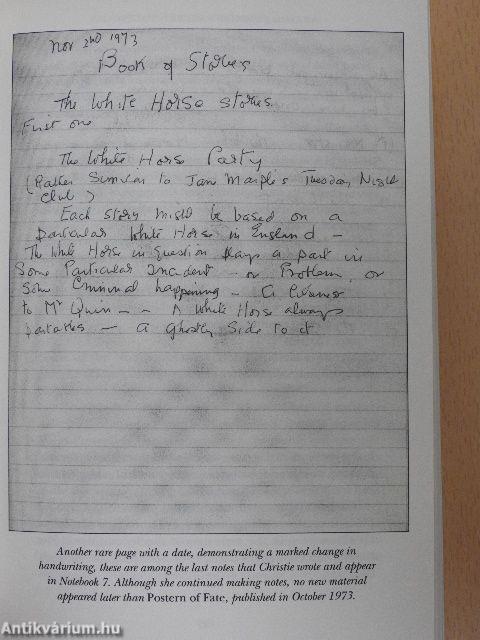 Nov 2nd 1973
Book of Stories
The White Horse stories.
First one
The White Horse Party
(Rather Similar to Jane Marple's Tuesday Night
Club)
Each story might be based on a
particular White Horse in England –
The White Horse in question plays a part in
Some Particular incident – or Problem or
Some Criminal happening –
to Mr Quin – – A White Horse always
– A ghostly Side to it
Another rare page with a date, demonstrating a marked change in
handwriting, these are among the last notes that Christie wrote and appear
in Notebook 7. Although she continued making notes, no new material
appeared later than Postern of Fate, published in October 1973.
Antikvárium.hu